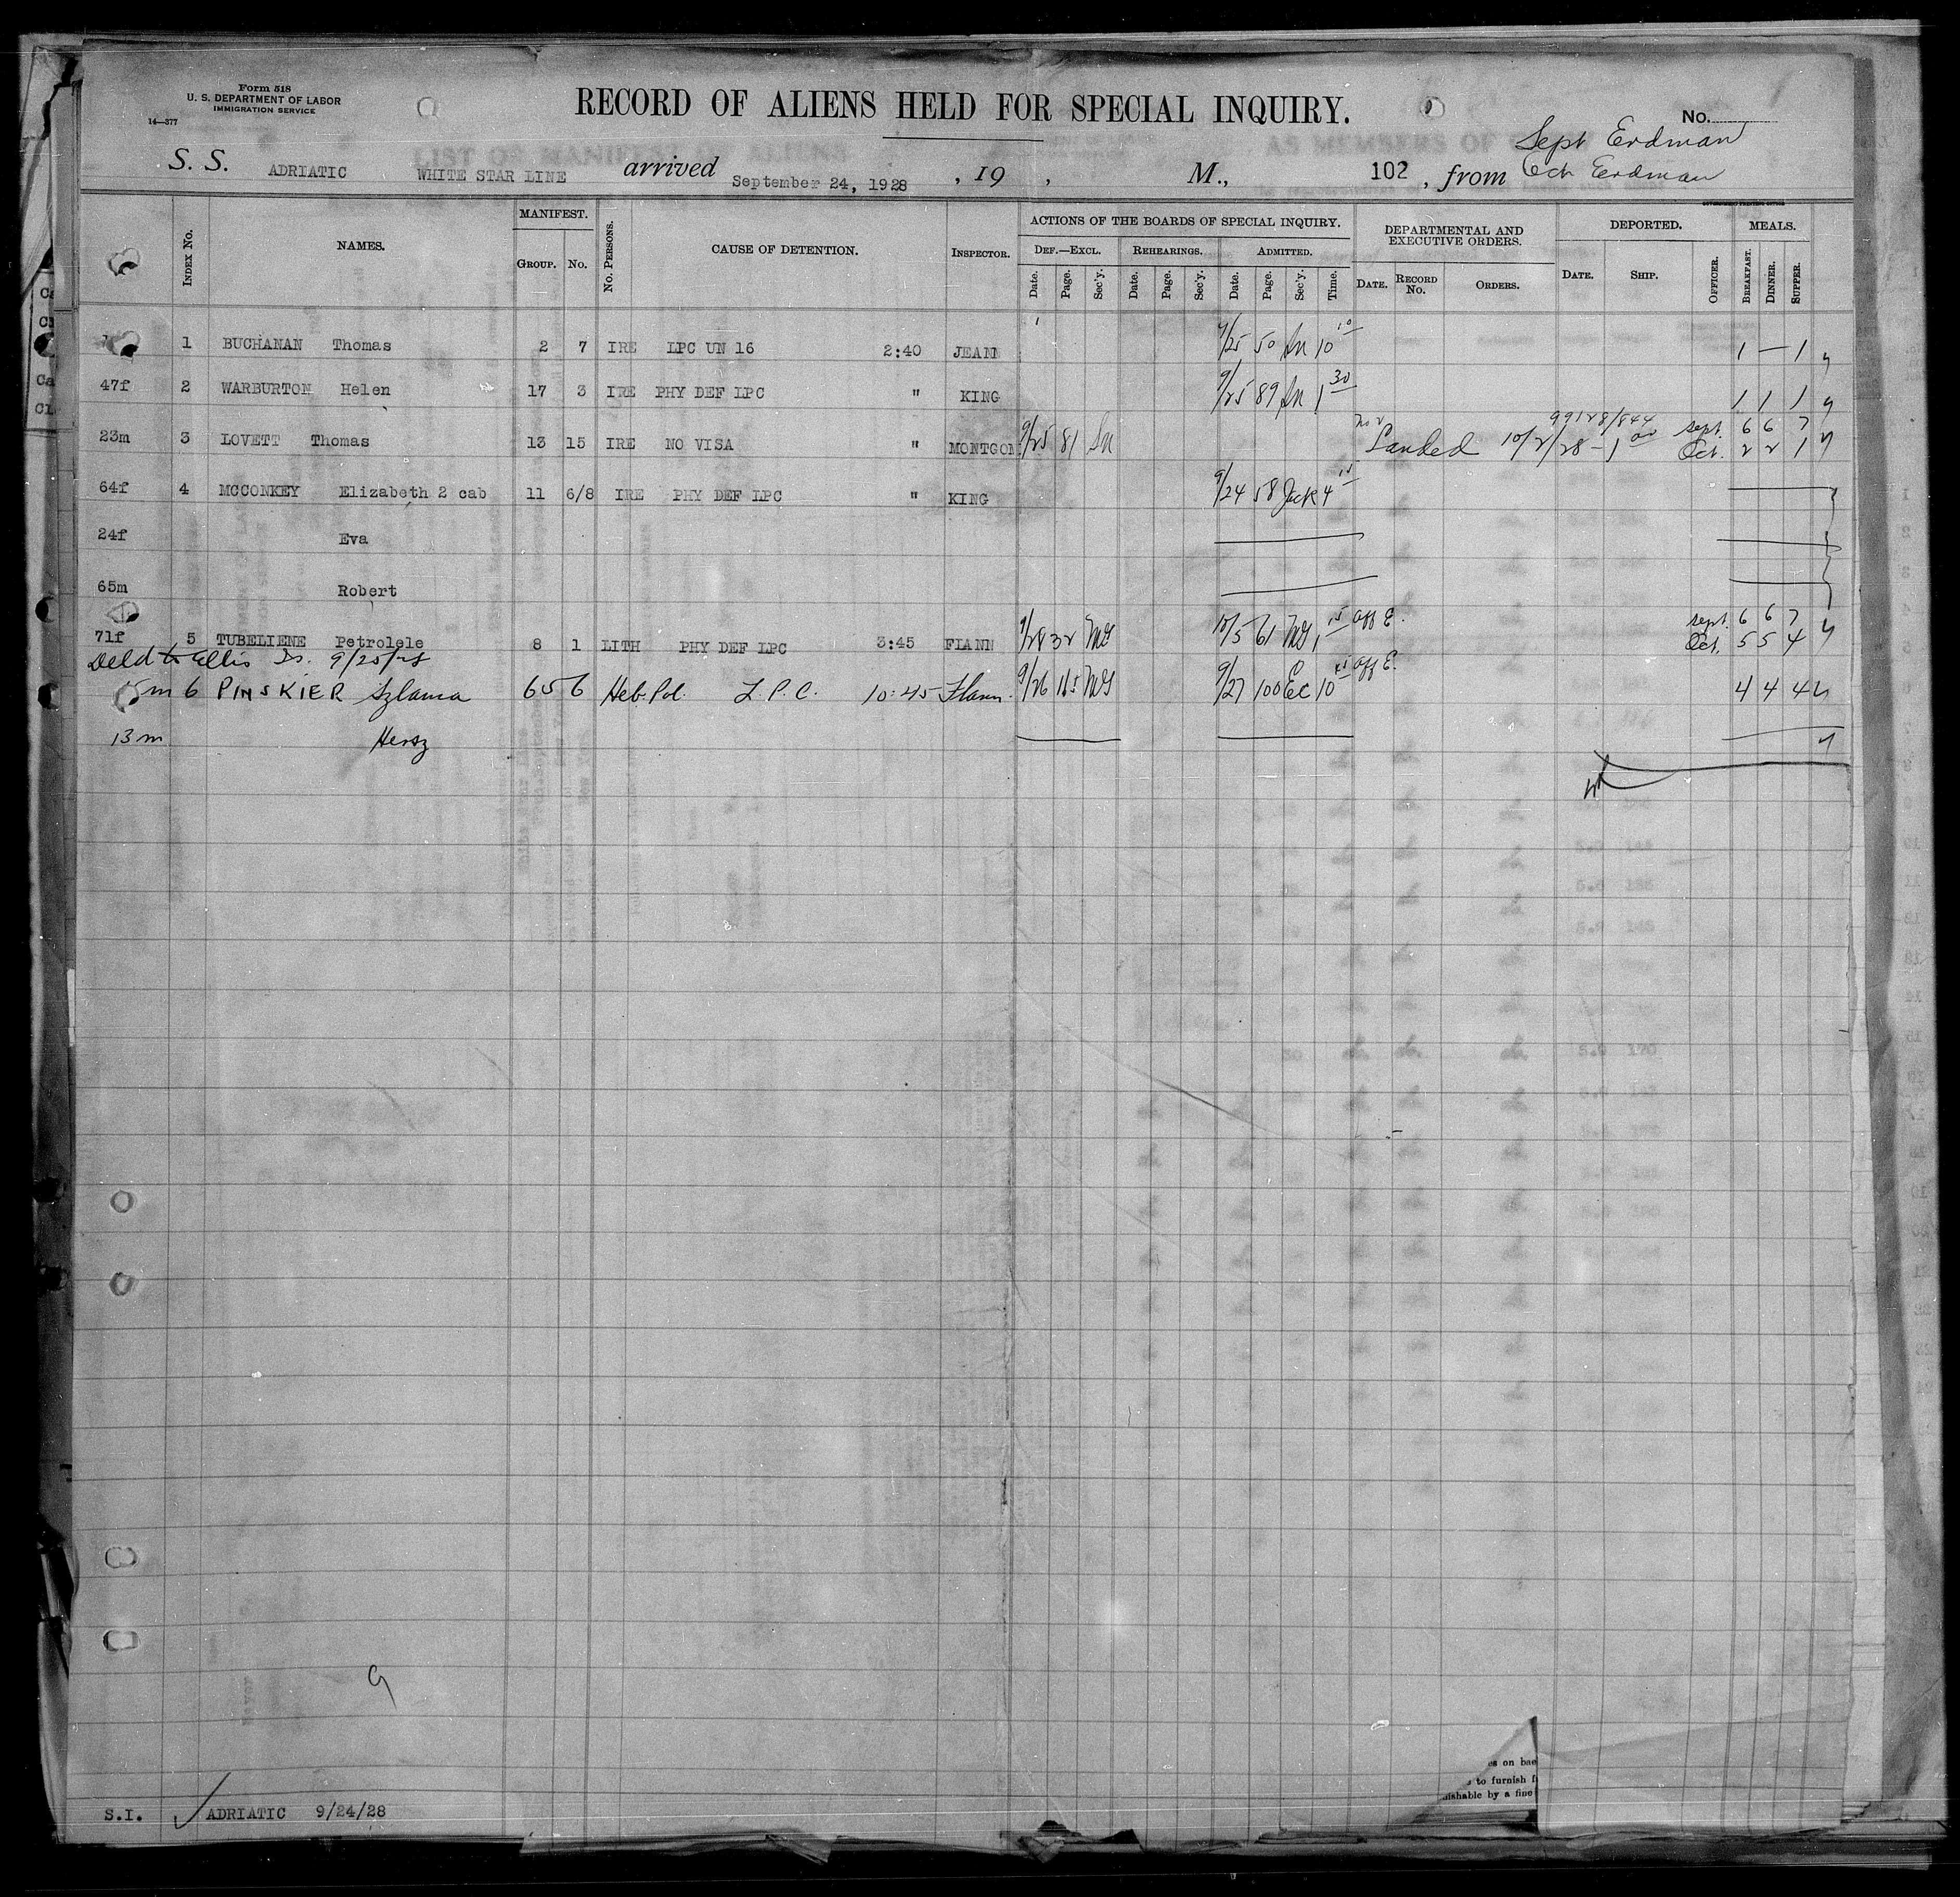 Form 518
U. S. DEPARTMENT OF LABOR
IMMIGRATION SERVICE
14—377
RECORD OF ALIENS HELD FOR SPECIAL INQUIRY.
No.
Sept Erdman
S. S. ADRIATIC WHITE STAR LINE arrived September 24, 1928, 19 , M., 102, from Oct Erdman
GOVERNMENT PRINTING OFFICE
Index No. NAMES. MANIFEST. Group. No. No. Persons. CAUSE OF DETENTION. Inspector. ACTIONS OF THE BOARDS OF SPECIAL INQUIRY. DEPARTMENTAL AND EXECUTIVE ORDERS. DEPORTED. MEALS.
Def.—Excl. Rehearings. Admitted.
Date. Page. Sec'y. Date. Page. Sec'y. Date. Page. Sec'y. Time. Date. Record No. Orders. Date. Ship. Officer. Breakfast. Dinner. Supper.
1 BUCHANAN Thomas 2 7 IRE LPC UN 16 2:40 JEANN 9/25 50 Ln 10 10 1 — 1
47f 2 WARBURTON Helen 17 3 IRE PHY DEF LPC " KING 9/25 89 Ln 1 30 1 1 1
99128/844 Sept. 6 6 7
23m 3 LOVETT Thomas 13 15 IRE NO VISA " MONTGOM 9/25 81 Ln Landed 10/2/28 - 1 00 Oct. 2 2 1
64f 4 MCCONKEY Elizabeth 2 cab 11 6/8 IRE PHY DEF LPC " KING 9/24 58 Jack 4 15
24f Eva
65m Robert
Sept. 6 6 7
71f 5 TUBELIENE Petrolele 8 1 LITH PHY DEF LPC 3:45 FLANN 9/28 32 MG 10/5 61 MG 1 15 aff E. Oct. 5 5 4
Deld to Ellis Is. 9/25/28
15m 6 PINSKIER Szlama 65 6 Heb. Pol. L.P.C. 10:45 Flann. 9/26 165 MG 9/27 100 EC 10 15 aff E. 4 4 4
13m Hersz
9
S.I. ADRIATIC 9/24/28
es on bac
to furnish f
ishable by a fine